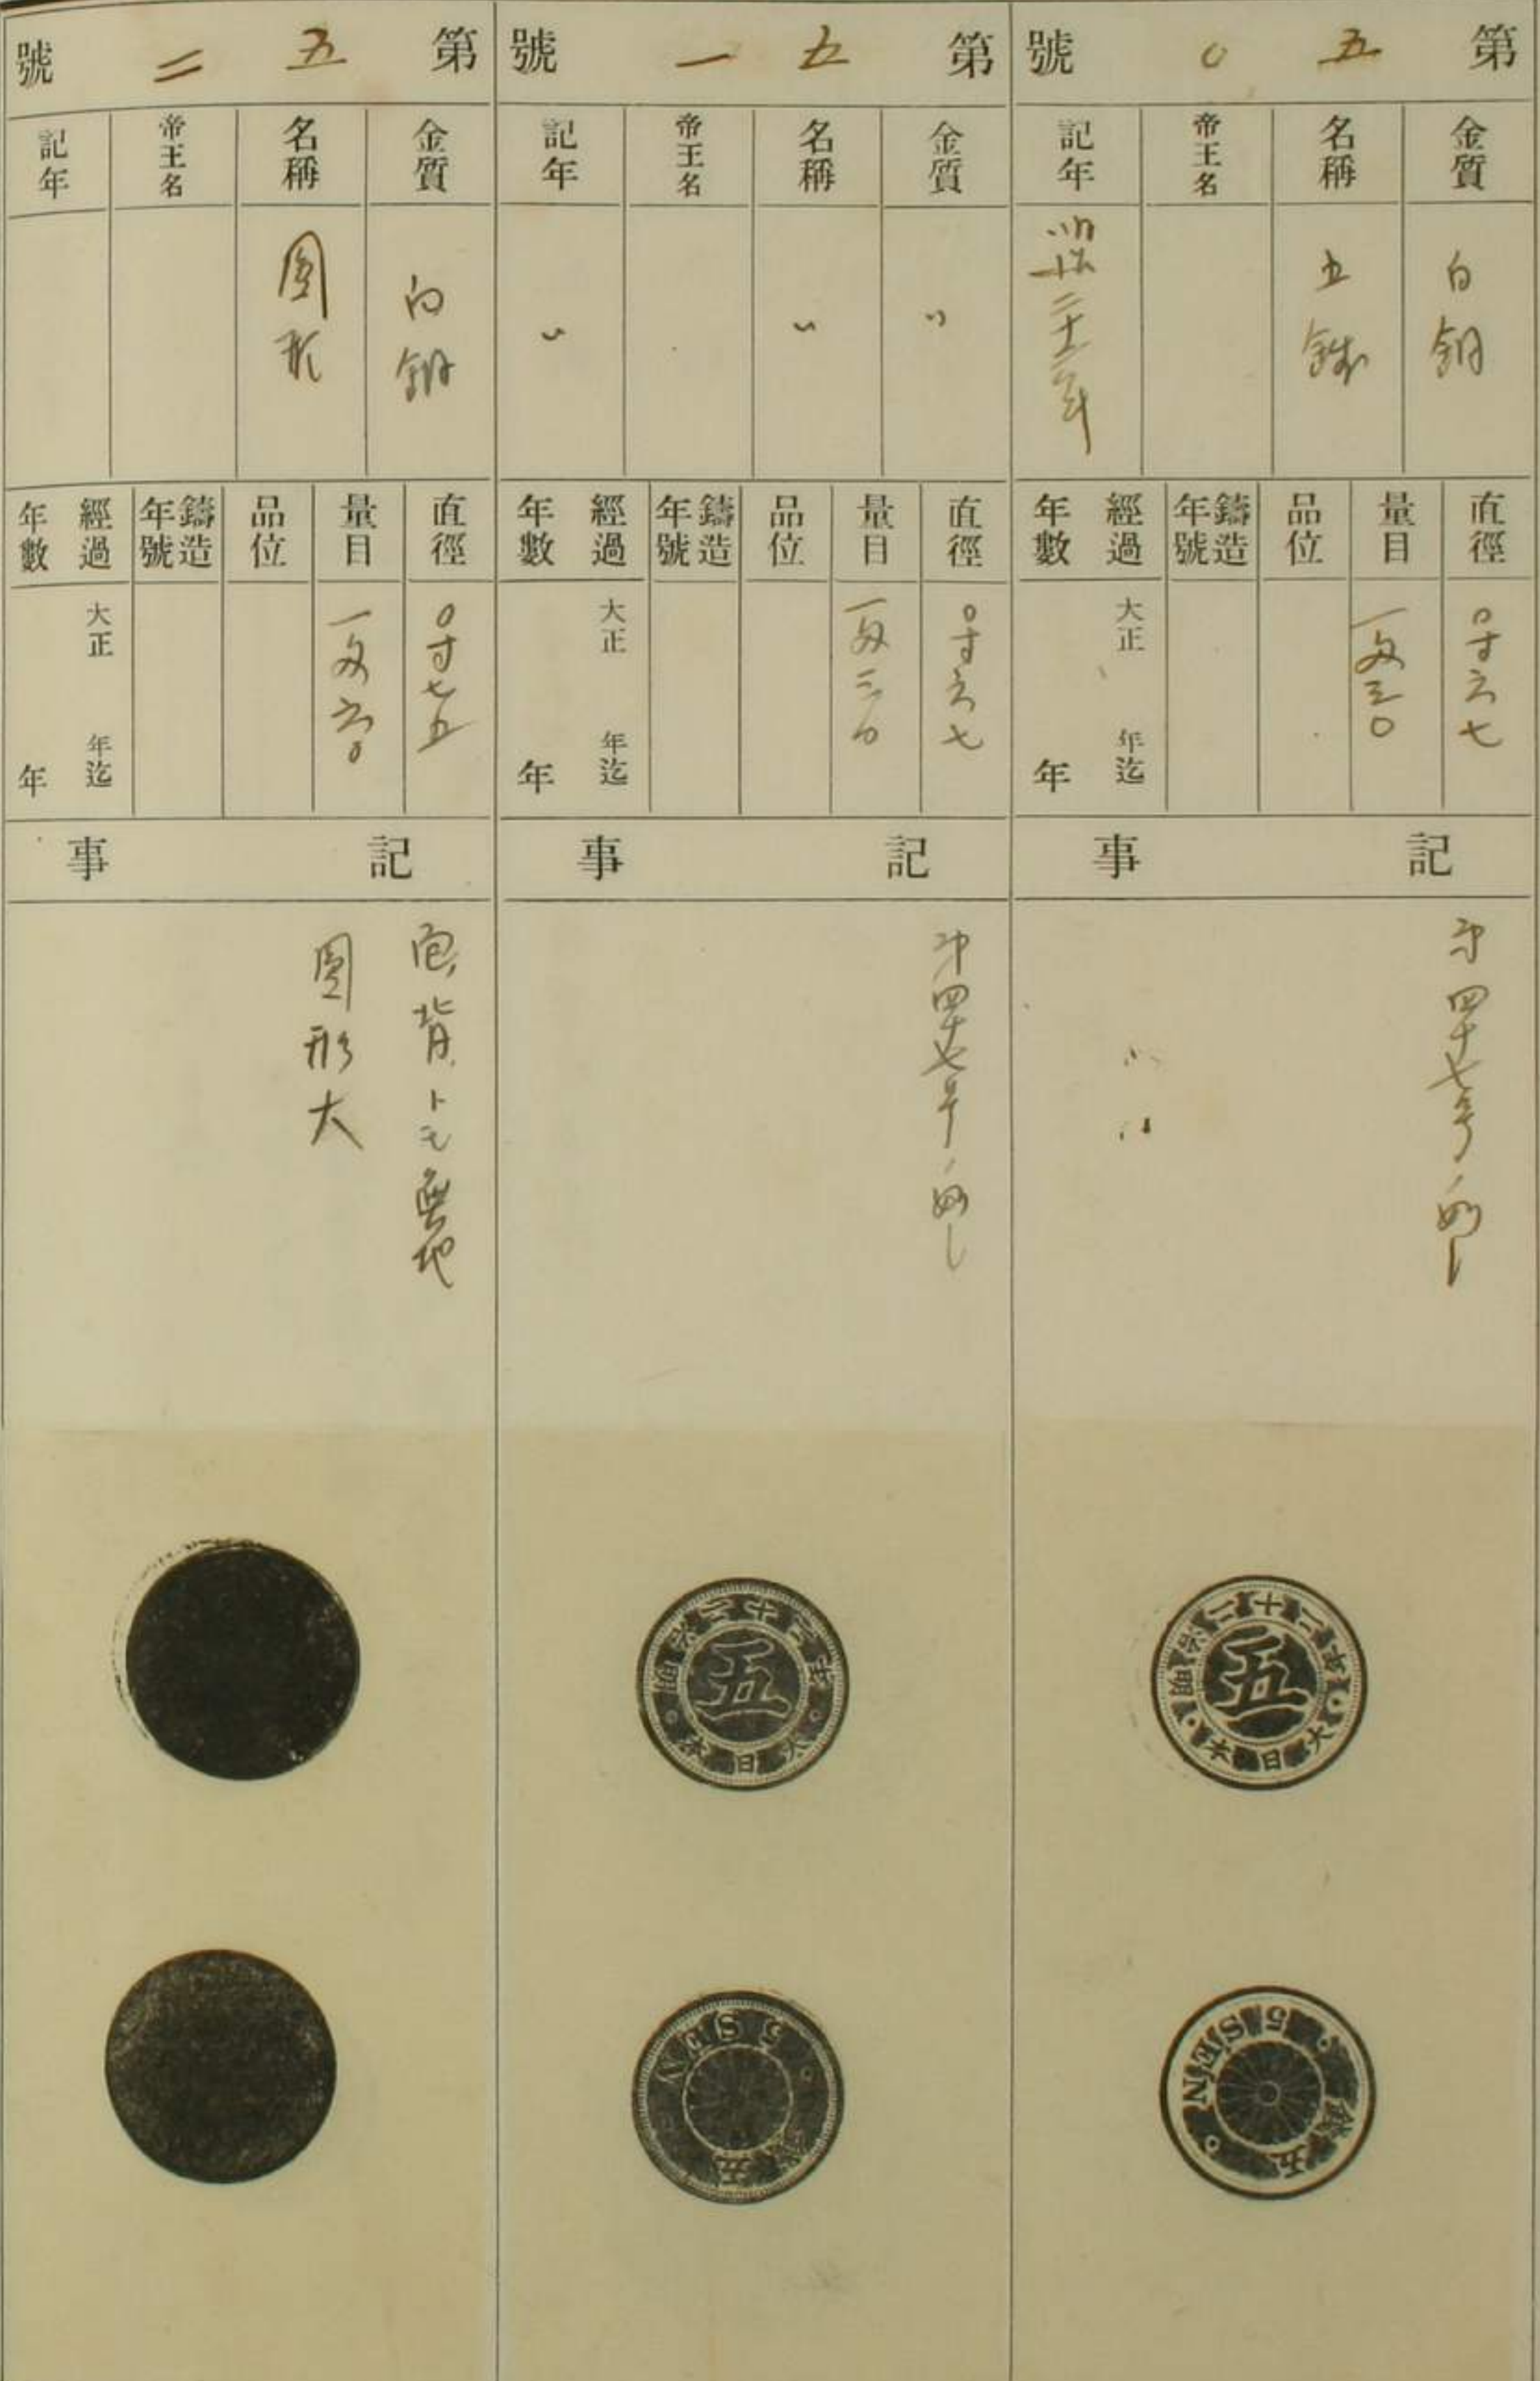 第五〇號
金質
名稱
帝王名
記年
白銅
五錢
明治二十二年
直徑
量目
品位
鑄造年號
經過年數
〇寸六七
一匁三〇
大正 年迄
年
記事
第四十七号ノ如し
明治二十二年
大日本
五
5 SEN
五錢
第五一號
金質
名稱
帝王名
記年
〃
〃
〃
直徑
量目
品位
鑄造年號
經過年數
〇寸六七
一匁三〇
大正 年迄
年
記事
第四十七号ノ如し
明治二十二年
大日本
五
5 SEN
五錢
第五二號
金質
名稱
帝王名
記年
白銅
圓形
直徑
量目
品位
鑄造年號
經過年數
〇寸七五
一匁六〇
大正 年迄
年
記事
面背トモ無地
圓形大